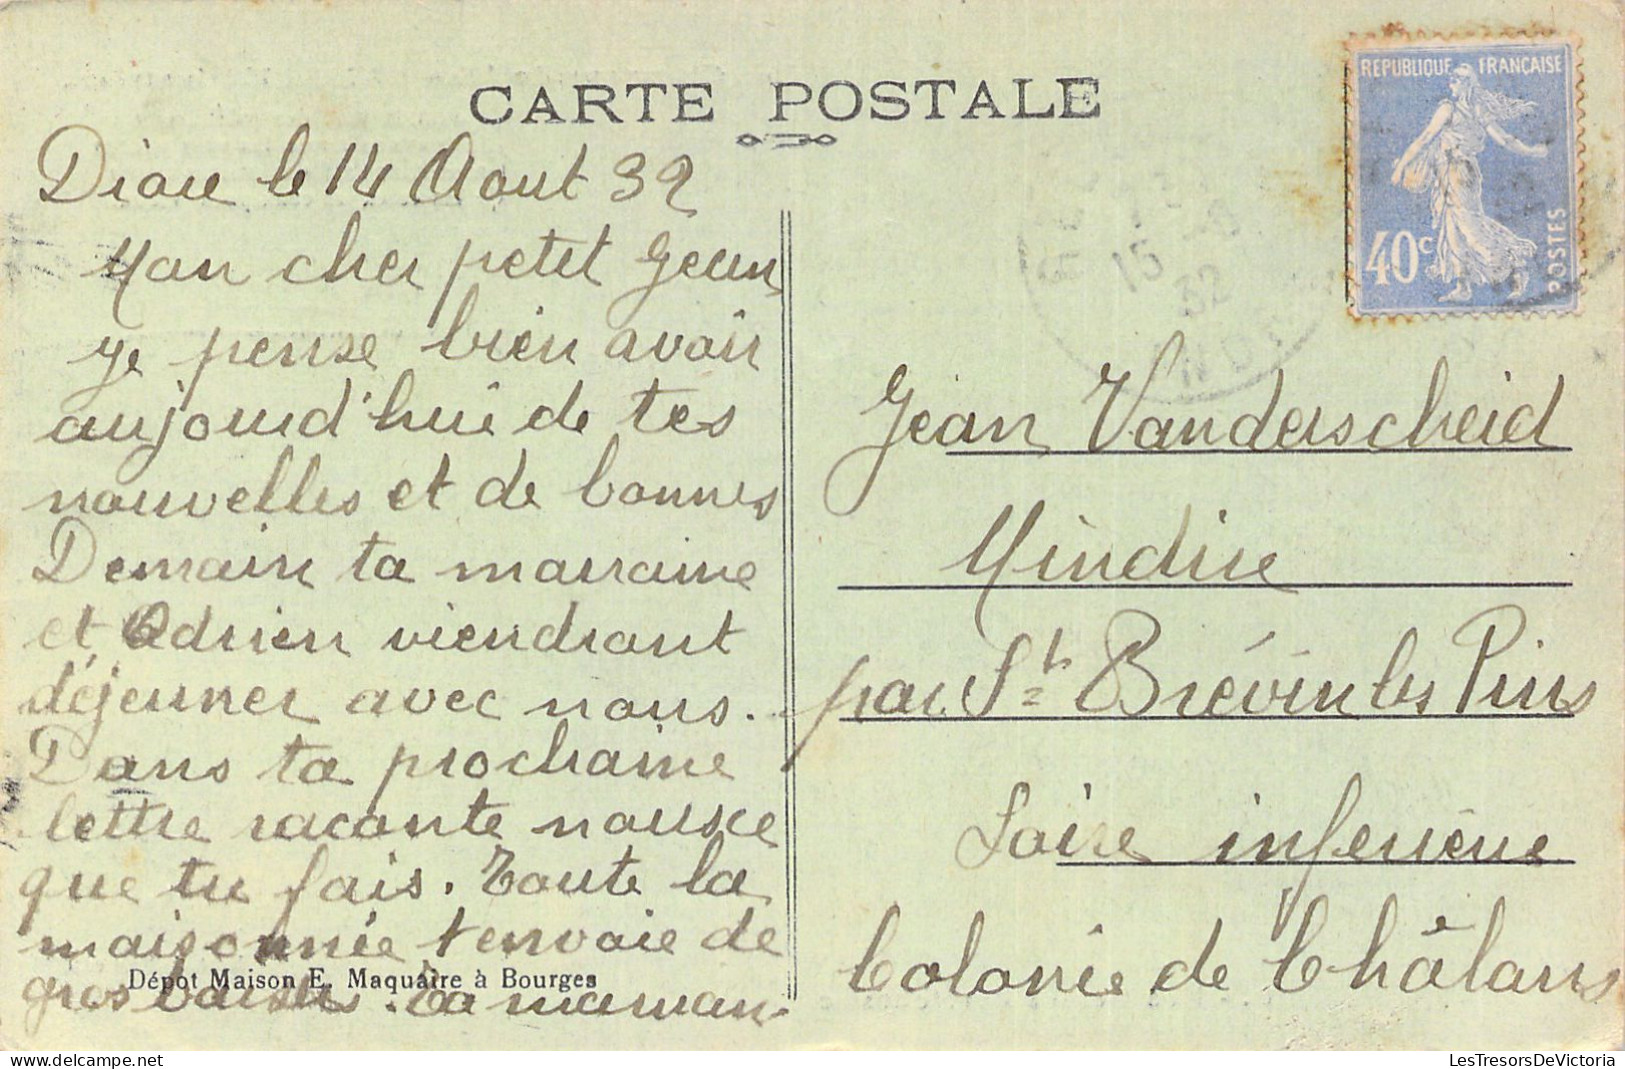 CARTE POSTALE
REPUBLIQUE FRANÇAISE
40c
POSTES
15
32
Diou le 14 Aout 32
Mon cher petit Jean
Je pense bien avoir
aujourd'hui de tes
nouvelles et de bonnes
Demain ta marraine
et Adrien viendront
déjeuner avec nous.
Dans ta prochaine
lettre raconte nous ce
que tu fais. Toute la
maisonnée t'envoie de
gros baisers. Ta maman.
Dépôt Maison E. Maquaire à Bourges
Jean Vanderscheid
Mindin
par St Brévin les Pins
Loire inferieure
Colonie de Châlons
LesTresorsDeVictoria